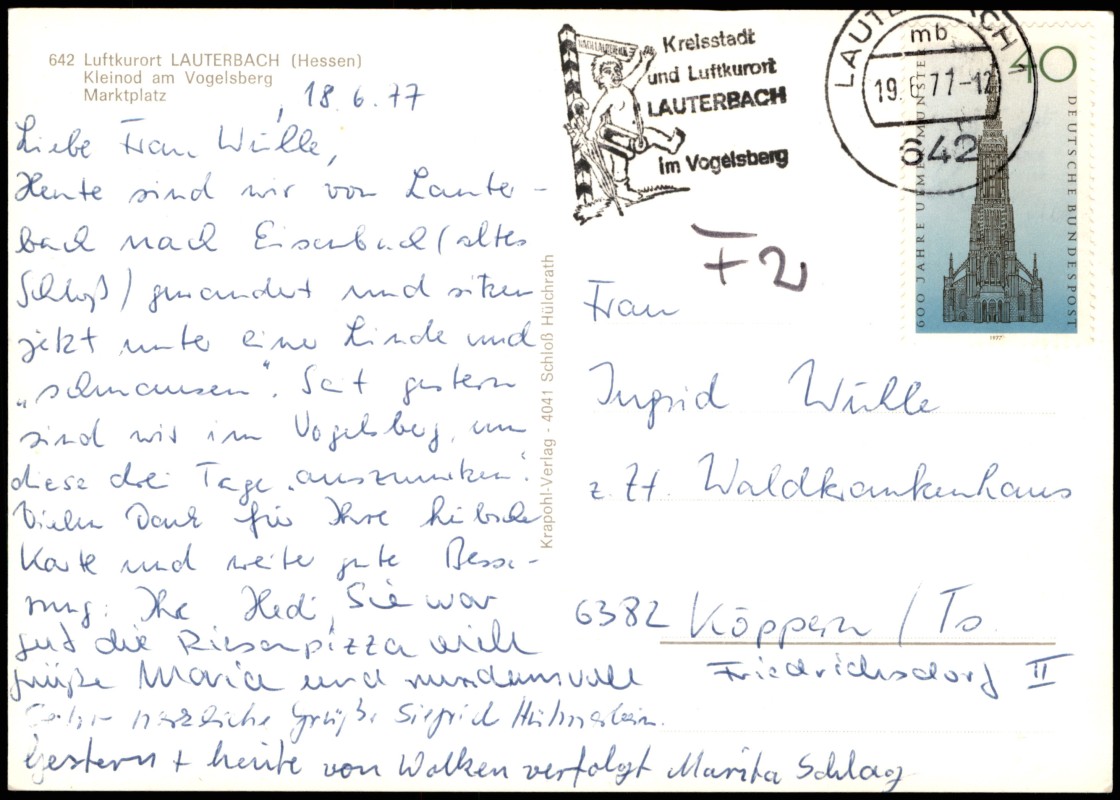 642 Luftkurort LAUTERBACH (Hessen)
Kleinod am Vogelsberg
Marktplatz
18.6.77
Liebe Frau Wülle,
Heute sind wir von Lauter-
bach nach Eisenbach (altes
Schloß) gewandert und sitzen
jetzt unter einer Linde und
„schmausen". Seit gestern
sind wir im Vogelsberg, um
diese drei Tage
Vielen Dank für Ihre hübsche
Karte und weiter gute Besse-
rung. Ihre Hedi, Sie war
gut die Riesenpizza
grüße Maria und
herzliche Grüße Siegrid
Gestern + heute von Wolken verfolgt Marita Schlag
Krapohl-Verlag - 4041 Schloß Hülchrath
Kreisstadt
und Luftkurort
LAUTERBACH
im Vogelsberg
LAUTERBACH
mb
19.6.77-12
642
40
600 JAHRE ULMER MÜNSTER
DEUTSCHE BUNDESPOST
1977
F2
Frau
Ingrid Wülle
z. Zt. Waldkrankenhaus
6382 Köppern / Ts.
Friedrichsdorf II